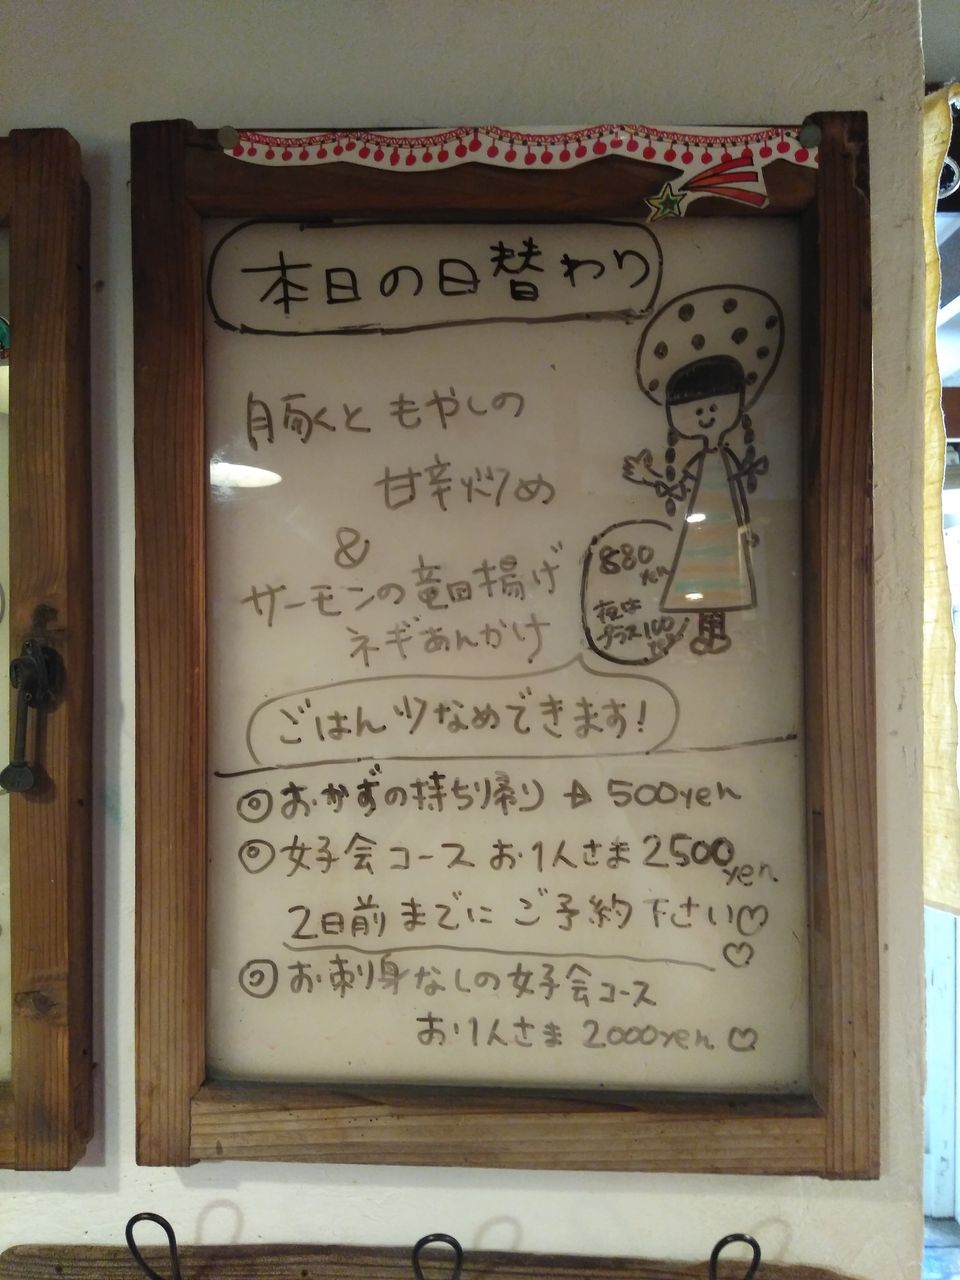 本日の日替わり
豚くともやしの
甘辛炒め
&
サーモンの竜田揚げ
ネギあんかけ
880
yen
夜は
プラス100
yen
ごはん少なめできます!
◎おかずの持ち帰り → 500yen
◎女子会コース お1人さま 2500yen
2日前までにご予約下さい♡
♡
◎お刺身なしの女子会コース
お1人さま 2000yen ♡